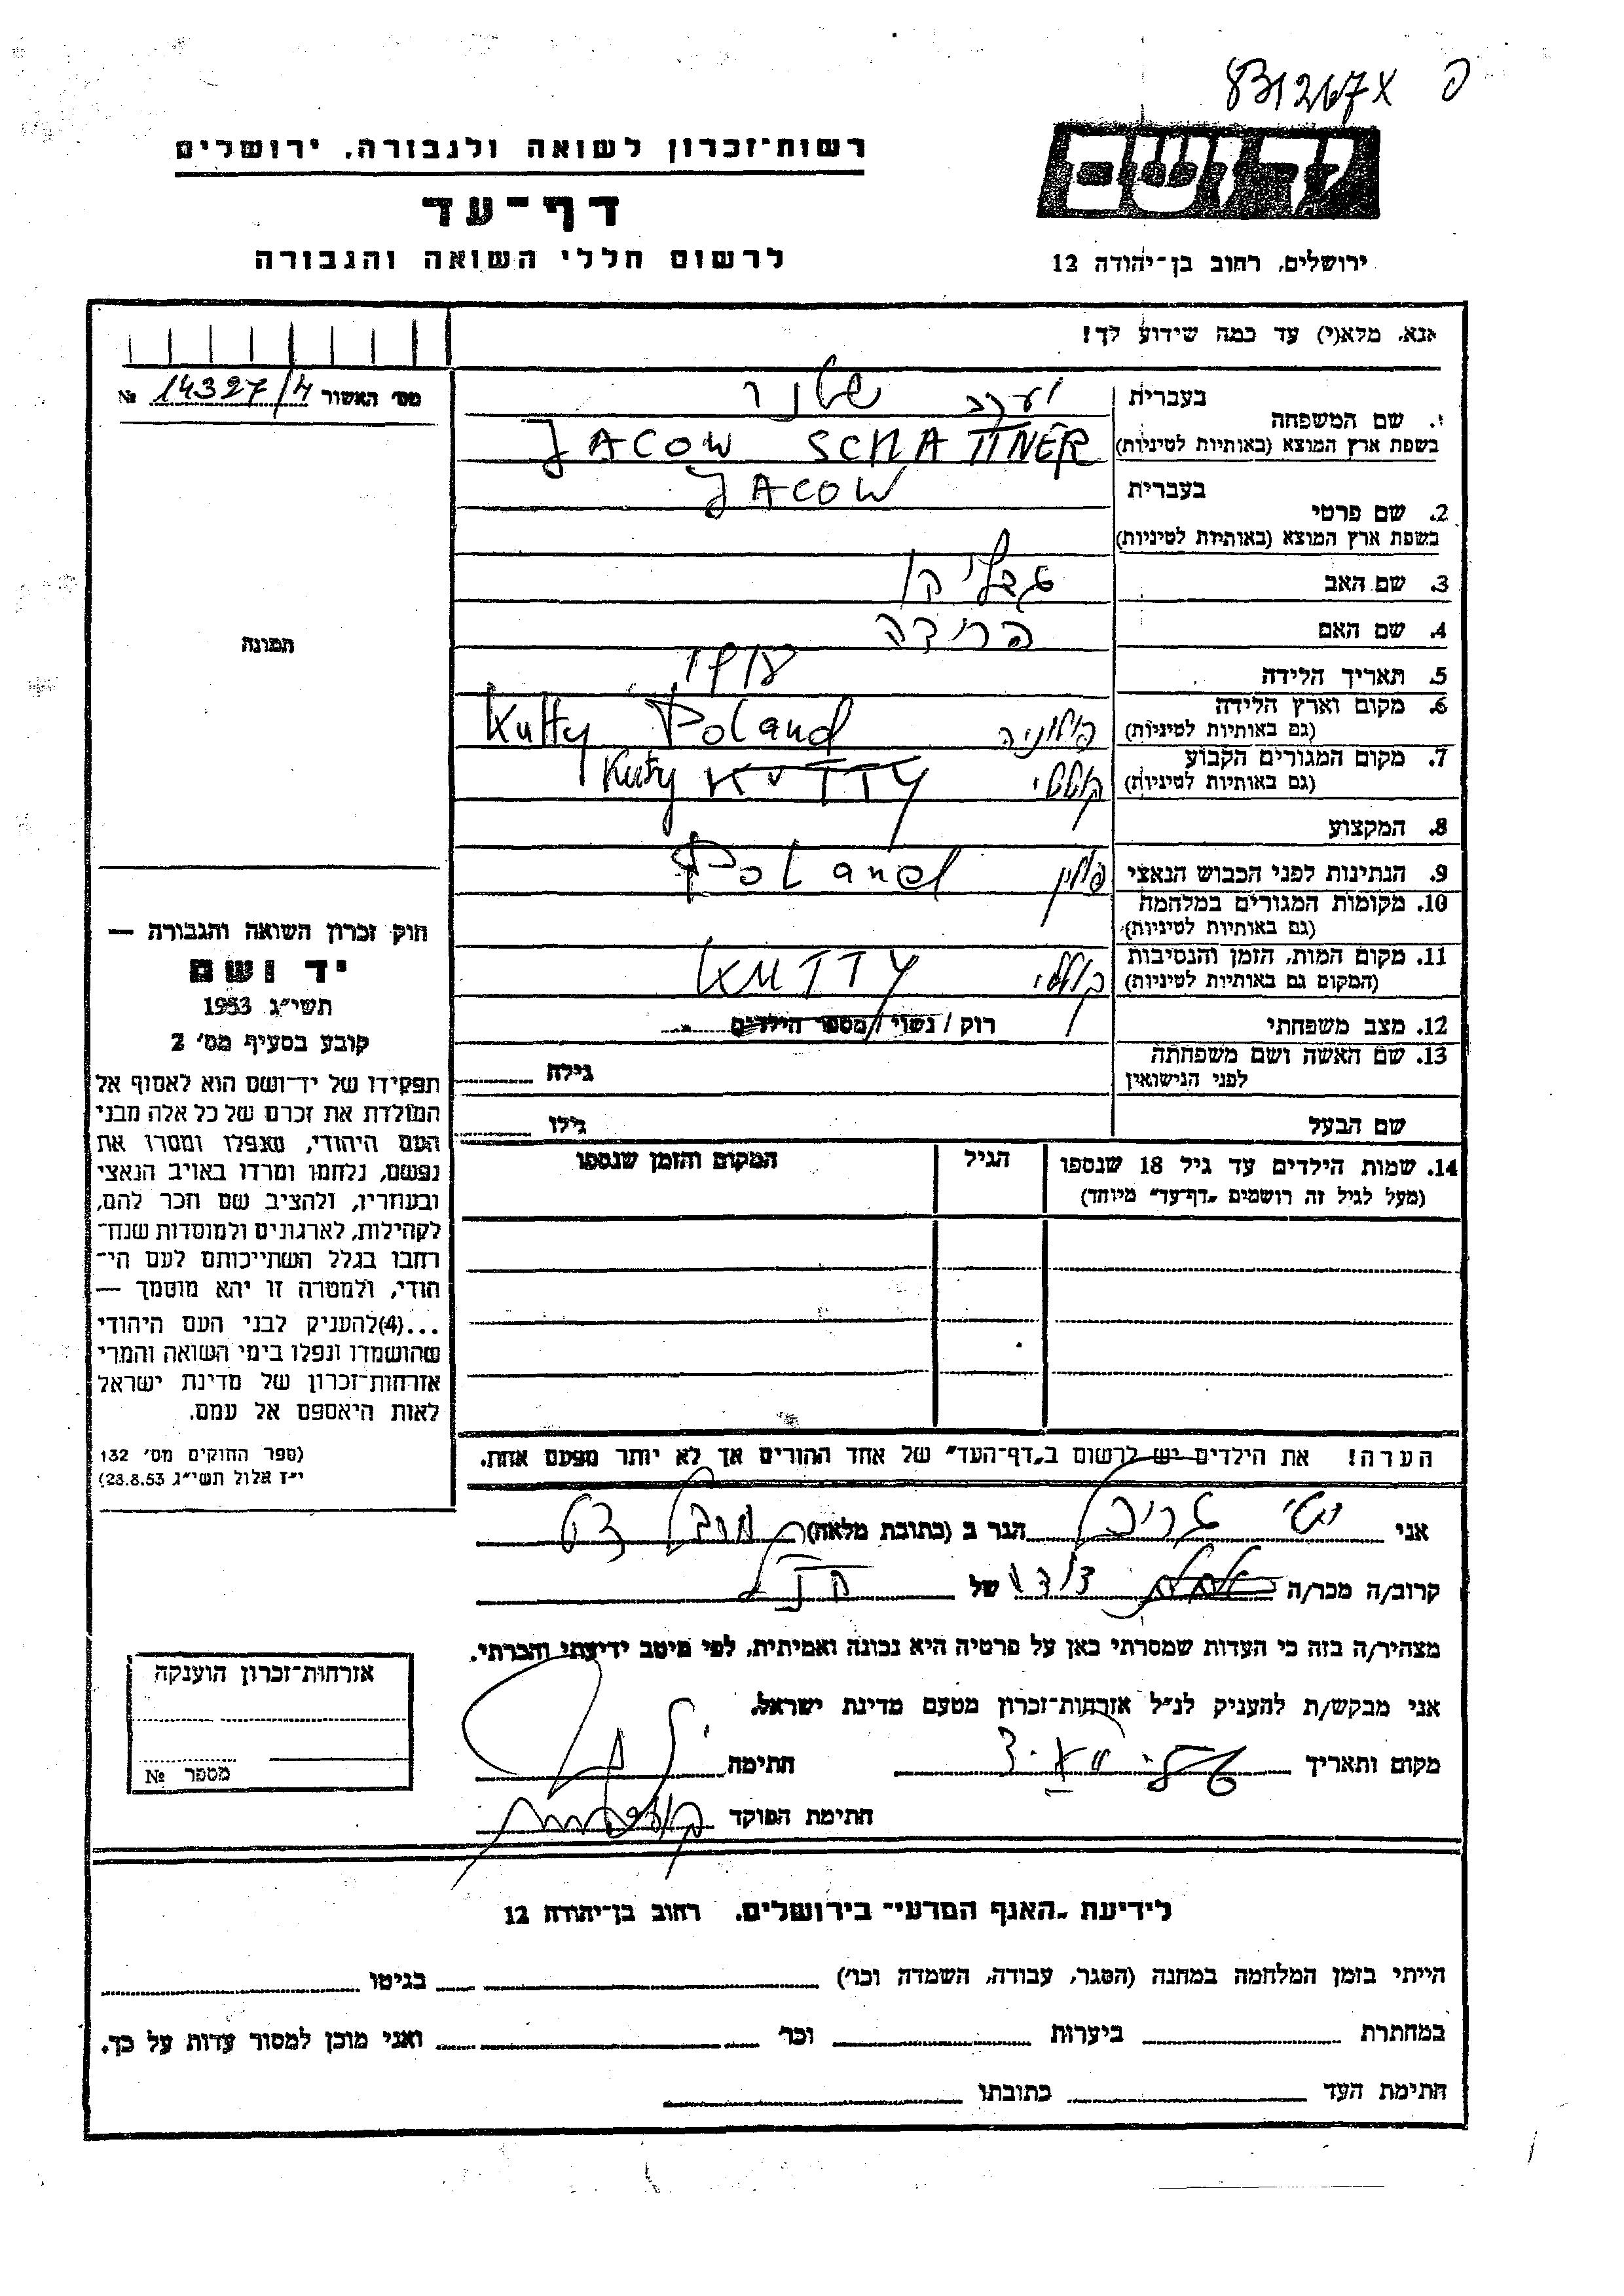 831267x פ
רשות־זכרון לשואה ולגבורה, ירושלים
דף־עד
לרשום חללי השואה והגבורה
יד ושם
ירושלים, רחוב בן־יהודה 12
אנא, מלא(י) עד כמה שידוע לך!
מס׳ האשור 14327/4 №
1. שם המשפחה
בעברית יעקב שטנר
בשפת ארץ המוצא (באותיות לטיניות) JACOW SCHATTNER
2. שם פרטי
בעברית JACOW
בשפת ארץ המוצא (באותיות לטיניות)
3. שם האב
4. שם האם פרידה
5. תאריך הלידה
6. מקום וארץ הלידה
(גם באותיות לטיניות) פולוניה Poland Kutty
7. מקום המגורים הקבוע
(גם באותיות לטיניות) קוטטי KUTTY Kuty
8. המקצוע
9. הנתינות לפני הכבוש הנאצי פולין Poland
10. מקומות המגורים במלחמה
(גם באותיות לטיניות)
11. מקום המות, הזמן והנסיבות
(המקום גם באותיות לטיניות) קוטטי KUTTY
12. מצב משפחתי רוק / נשוי / מספר הילדים
13. שם האשה ושם משפחתה
לפני הנישואין גילה
שם הבעל גילו
14. שמות הילדים עד גיל 18 שנספו
(מעל לגיל זה רושמים „דף־עד״ מיוחד)
הגיל
המקום והזמן שנספו
הערה! את הילדים יש לרשום ב„דף־העד״ של אחד ההורים אך לא יותר מפעם אחת.
תמונה
חוק זכרון השואה והגבורה —
יד ושם
תשי״ג 1953
קובע בסעיף מס׳ 2
תפקידו של יד־ושם הוא לאסוף אל
המולדת את זכרם של כל אלה מבני
העם היהודי, שנפלו ומסרו את
נפשם, נלחמו ומרדו באויב הנאצי
ובעוזריו, ולהציב שם וזכר להם,
לקהילות, לארגונים ולמוסדות שנח־
רבו בגלל השתייכותם לעם הי־
הודי, ולמטרה זו יהא מוסמך —
...(4) להעניק לבני העם היהודי
שהושמדו ונפלו בימי השואה והמרי
אזרחות־זכרון של מדינת ישראל
לאות היאספם אל עמם.
(ספר החוקים מס׳ 132
י״ז אלול תשי״ג 28.8.53)
אני הגר ב (כתובת מלאה)
קרוב/ה מכר/ה דודו של הנ״ל
מצהיר/ה בזה כי העדות שמסרתי כאן על פרטיה היא נכונה ואמיתית, לפי מיטב ידיעתי והכרתי.
אני מבקש/ת להעניק לנ״ל אזרחות־זכרון מטעם מדינת ישראל.
מקום ותאריך חתימה
חתימת הפוקד
אזרחות־זכרון הוענקה
מספר №
לידיעת „האגף המדעי״ בירושלים, רחוב בן־יהודה 12
הייתי בזמן המלחמה במחנה (הסגר, עבודה, השמדה וכו׳) בגיטו
במחתרת ביערות וכו׳ ואני מוכן למסור עדות על כך.
חתימת העד כתובתו